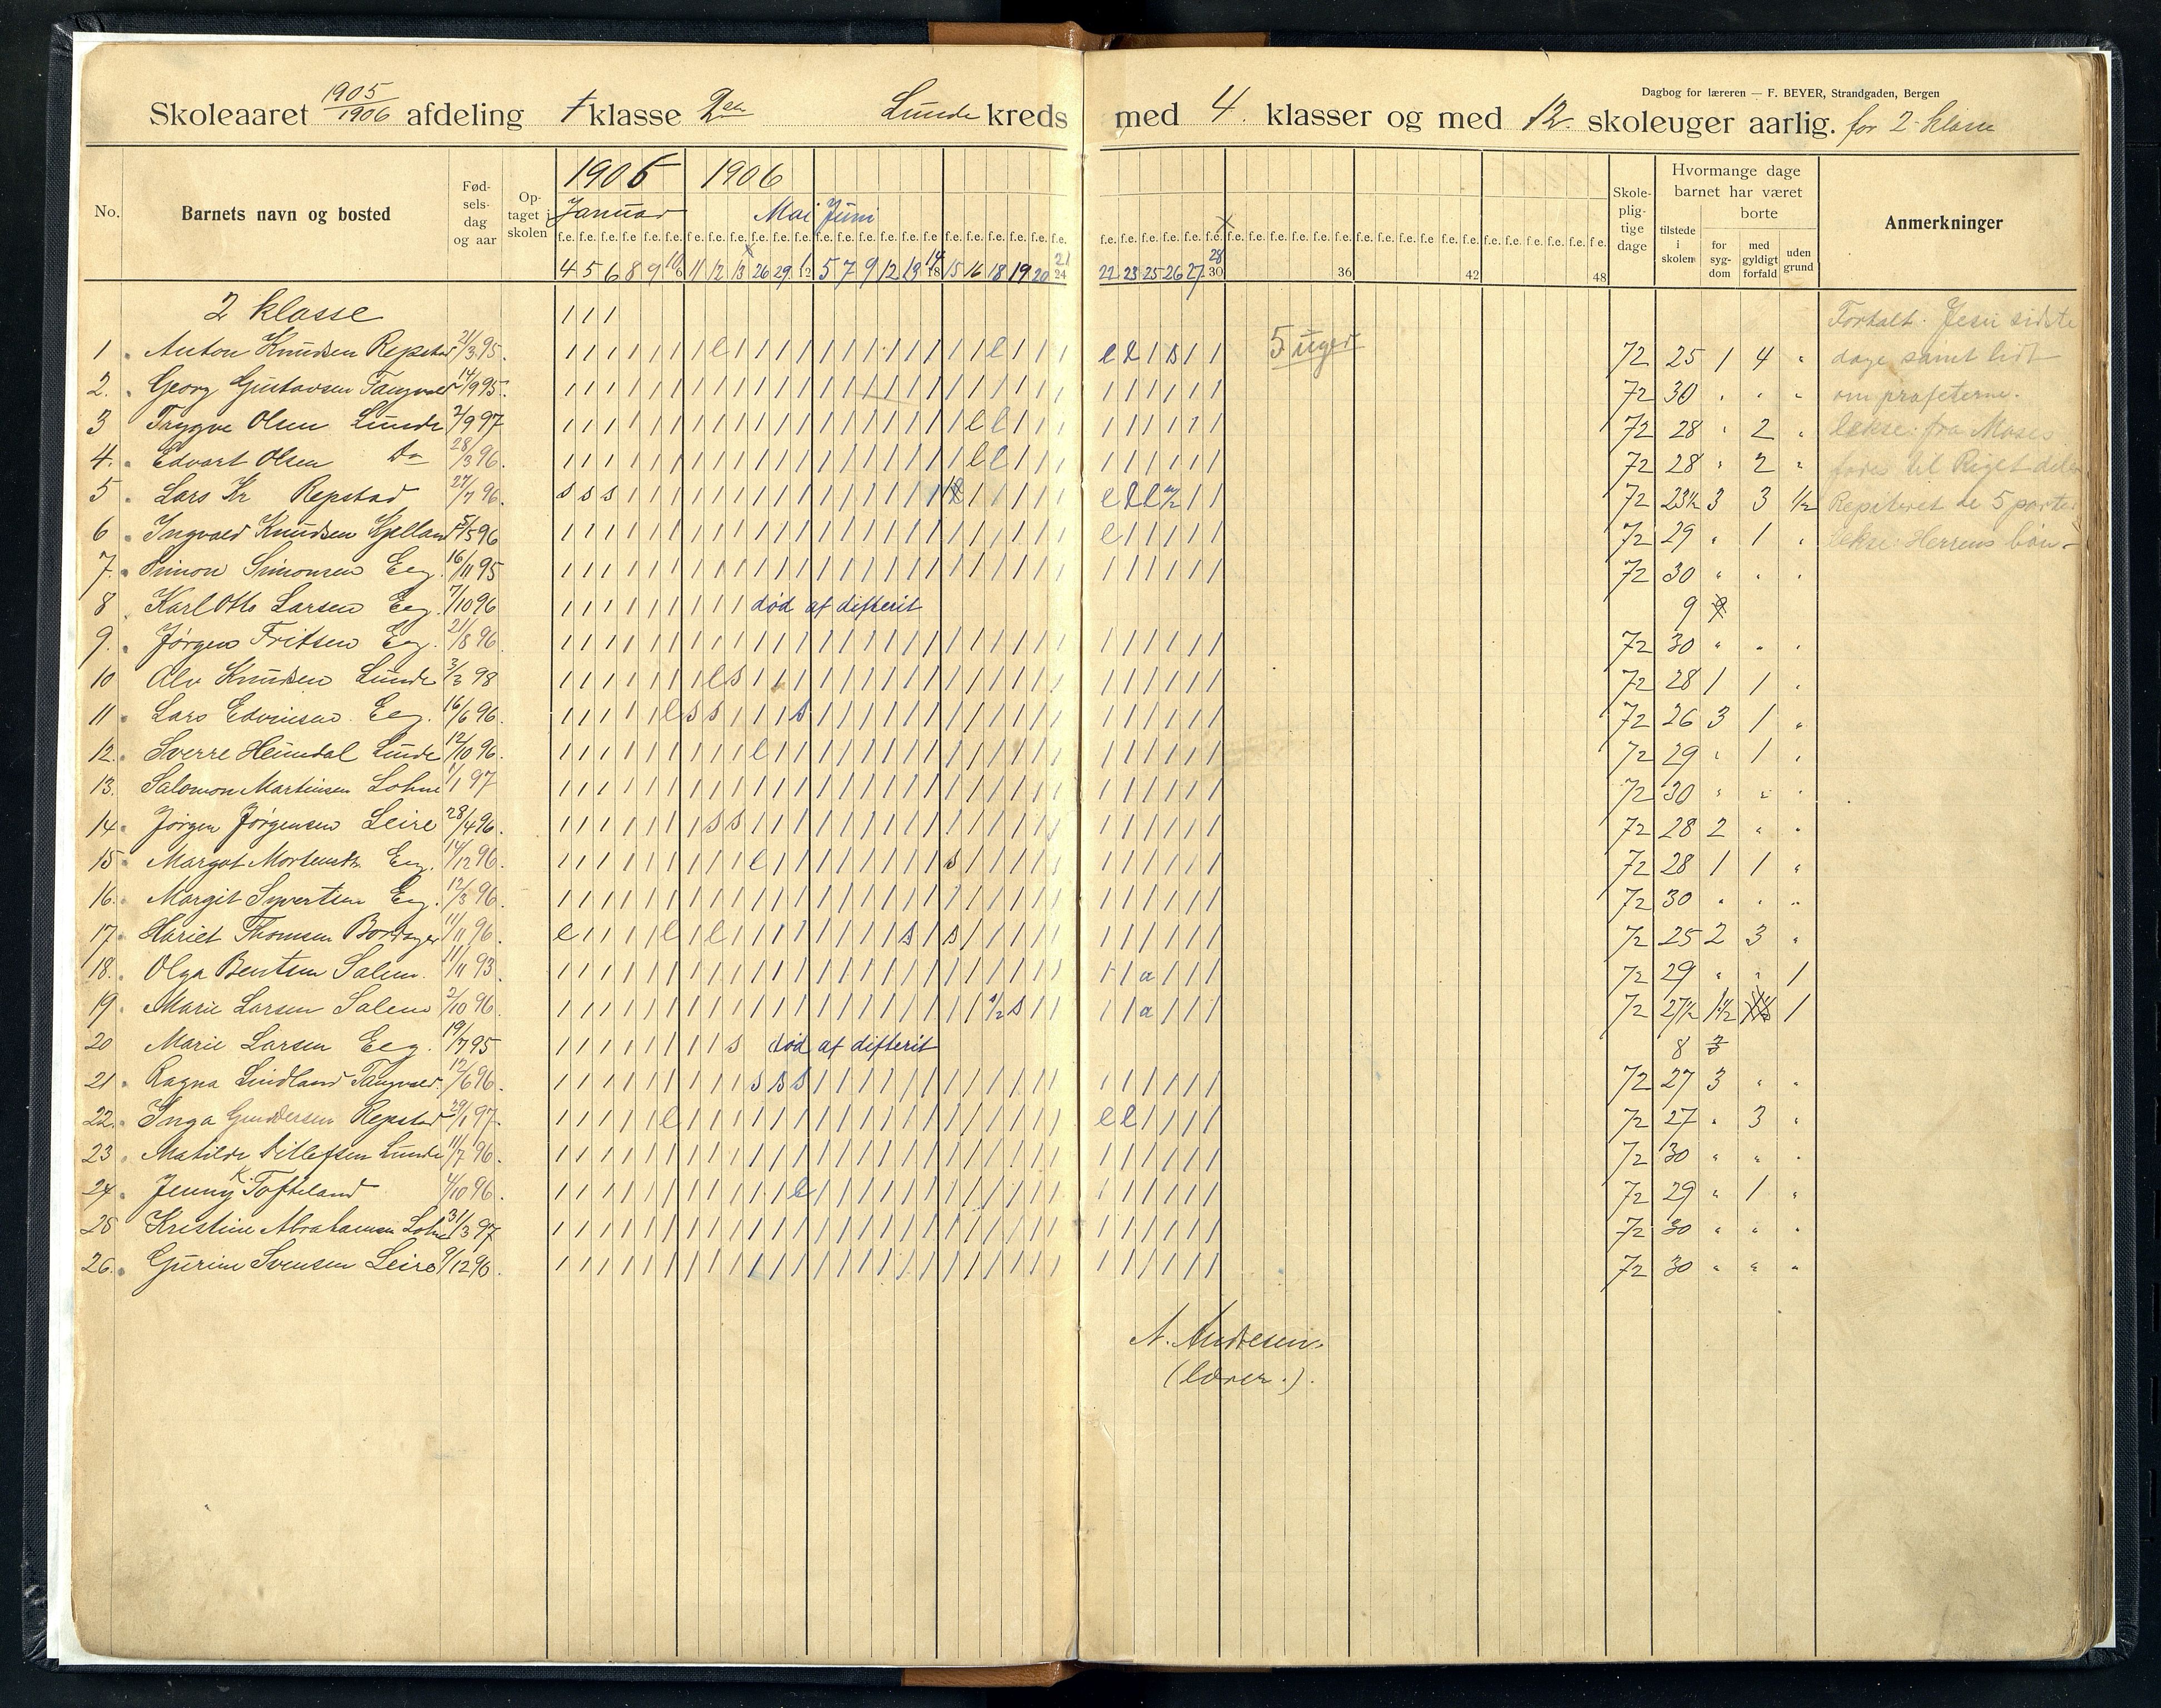 Dagbog for læreren — F. BEYER, Strandgaden, Bergen
Skoleaaret 1905/1906 afdeling 1 klasse 2den Lunde kreds med 4 klasser og med 12 skoleuger aarlig. for 2 klasse
No. Barnets navn og bosted Fødselsdag og aar Optaget i skolen 1905 1906 Skolepligtige dage Hvormange dage barnet har været Anmerkninger
Januar Mai Juni tilstede i skolen borte
for sygdom med gyldigt forfald uden grund
4 5 6 8 9 10/6 11 12 13 26 29 1/12 5 7 9 12 13 14/18 15 16 18 19 20 21/24 22 23 25 26 27 28/30 36 42 48
2 klasse Fortalt. Jesu sidste
1 Anton Knudsen Repstad 21/3 95. 5 uger 72 25 1 4 " dage samt lidt
2. Georg Gustavsen Tangvald 14/9 95. 72 30 " " " om profeterne.
3 Trygve Olsen Lunde 2/9 97 72 28 " 2 " lekse: fra Moses
4. Edvart Olsen do 28/3 96. 72 28 " 2 " til Riget
5 Lars Kr Repstad 27/7 96. 72 23½ 3 3 ½ Repiteret de 5 parter
6 Ingvald Knudsen Kjelland 5/5 96 72 29 " 1 " lekse: Herrens bøn
7. Simon Simonsen Eeg. 16/11 95 72 30 " " "
8 Karl Otto Larsen Eeg. 7/10 96 død af difterit 9
9. Jørgen Fritsen Eeg. 21/8 96. 72 30 " " "
10 Alv Knudsen Lunde 3/3 98 72 28 1 1 "
11 Lars Edvinsen Eeg. 16/6 96. 72 26 3 1 "
12. Sverre Heimdal Lunde 12/10 96. 72 29 " 1 "
13. Salomon Martinsen Lohne 1/1 97 72 30 " " "
14. Jørgen Jørgensen Leire 28/4 96. 72 28 2 " "
15 Margot Mortensen Eeg. 14/12 96. 72 28 1 1 "
16. Margit Syvertsen Eeg. 12/3 96. 72 30 " " "
17 Hariet Thomsen 11/11 96. 72 25 2 3 "
18. Olga Bentsen Salem. 11/11 93 72 29 " " 1
19. Marie Larsen Salem 2/10 96. 72 27½ 1½ 1
20 Marie Larsen Eeg. 19/7 95 død af difterit 8
21. Ragna Lindland Tangvald. 12/6 96. 72 27 3 " "
22. Inga Gundersen Repstad 29/1 97. 72 27 " 3 "
23. Matilde Ditlefsen Lunde 11/7 96. 72 30 " " "
24. Jenny K. Tofteland 4/10 96. 72 29 " 1 "
25 Kristine Abrahamsen Lohne 31/3 97 72 30 " " "
26. Gurine Svensen Leire 9/12 96. 72 30 " " "
A. Andresen.
(lærer.).